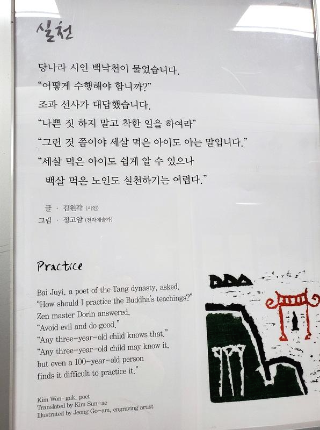 실천
당나라 시인 백낙천이 물었습니다.
"어떻게 수행해야 합니까?"
조과 선사가 대답했습니다.
"나쁜 짓 하지 말고 착한 일을 하여라"
"그런 것 쯤이야 세살 먹은 아이도 아는 말입니다."
"세살 먹은 아이도 쉽게 알 수 있으나
백살 먹은 노인도 실천하기는 어렵다."
글 - 김원각 (시인)
그림 - 정고암 (전각예술가)
Practice
Bai Juyi, a poet of the Tang dynasty, asked,
"How should I practice the Buddha's teachings?"
Zen master Dorin answered,
"Avoid evil and do good."
"Any three-year-old child knows that."
"Any three-year-old child may know it,
but even a 100-year-old person
finds it difficult to practice it."
Kim Won-gak, poet
Translated by Kim
Illustrated by Jeong Go-am, engraving artist